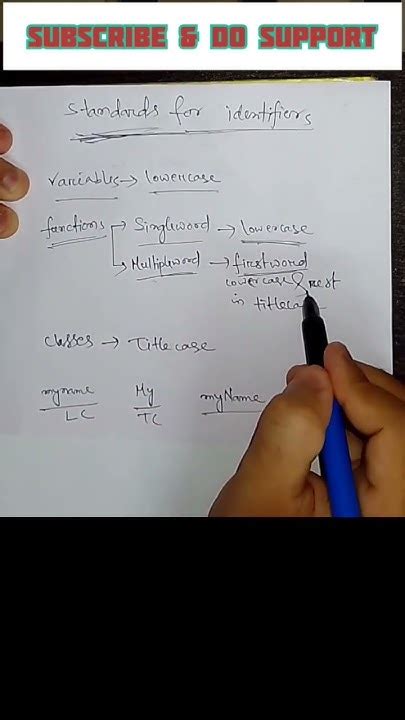 SUBSCRIBE & DO SUPPORT
Standards for identifiers
Variables → lowercase
functions → Singleword → lowercase
Multipleword → firstword
lowercase & rest
in titlecase
Classes → Titlecase
myname My myName
LC TC